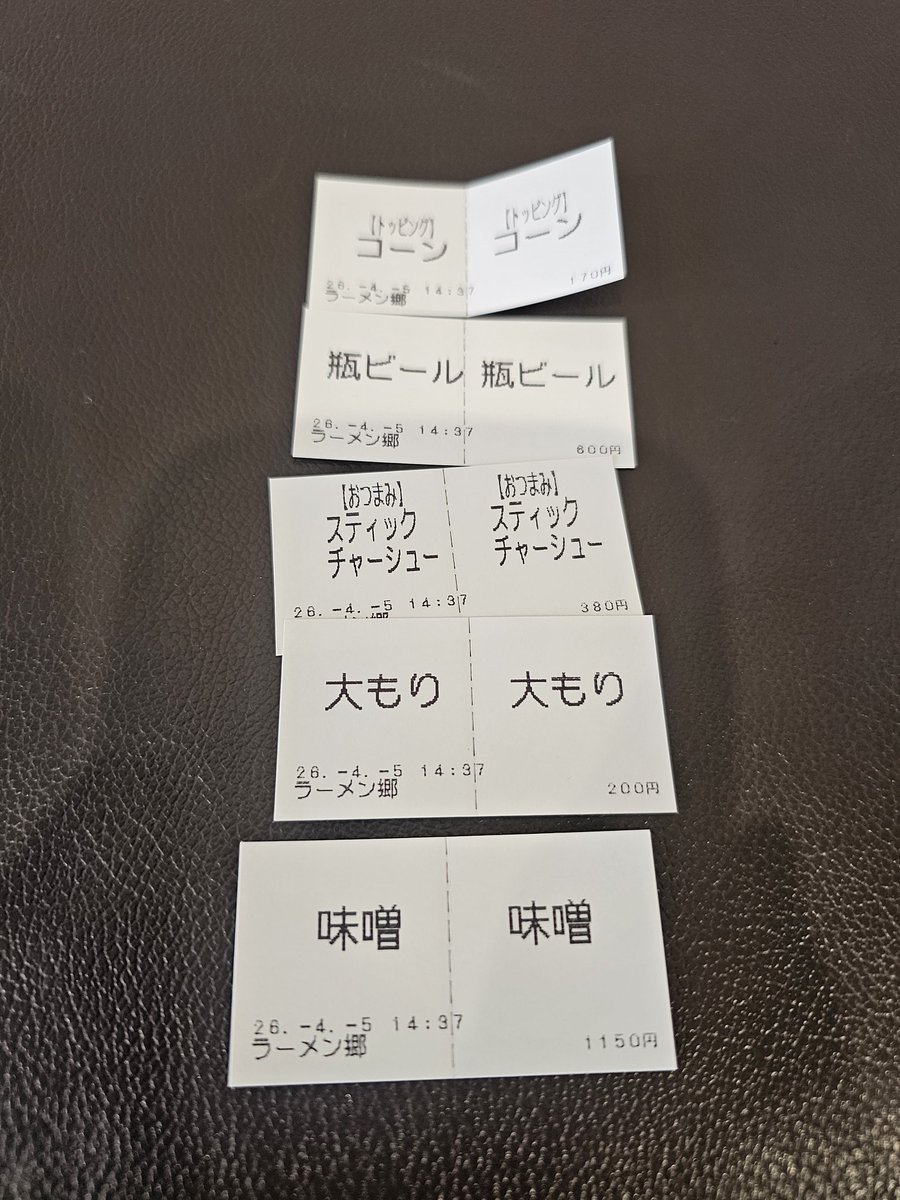 【トッピング】
コーン
26.-4.-5 14:37
ラーメン郷
【トッピング】
コーン
170円
瓶ビール
26.-4.-5 14:37
ラーメン郷
瓶ビール
600円
【おつまみ】
スティック
チャーシュー
26.-4.-5 14:37
【おつまみ】
スティック
チャーシュー
380円
大もり
26.-4.-5 14:37
ラーメン郷
大もり
200円
味噌
26.-4.-5 14:37
ラーメン郷
味噌
1150円